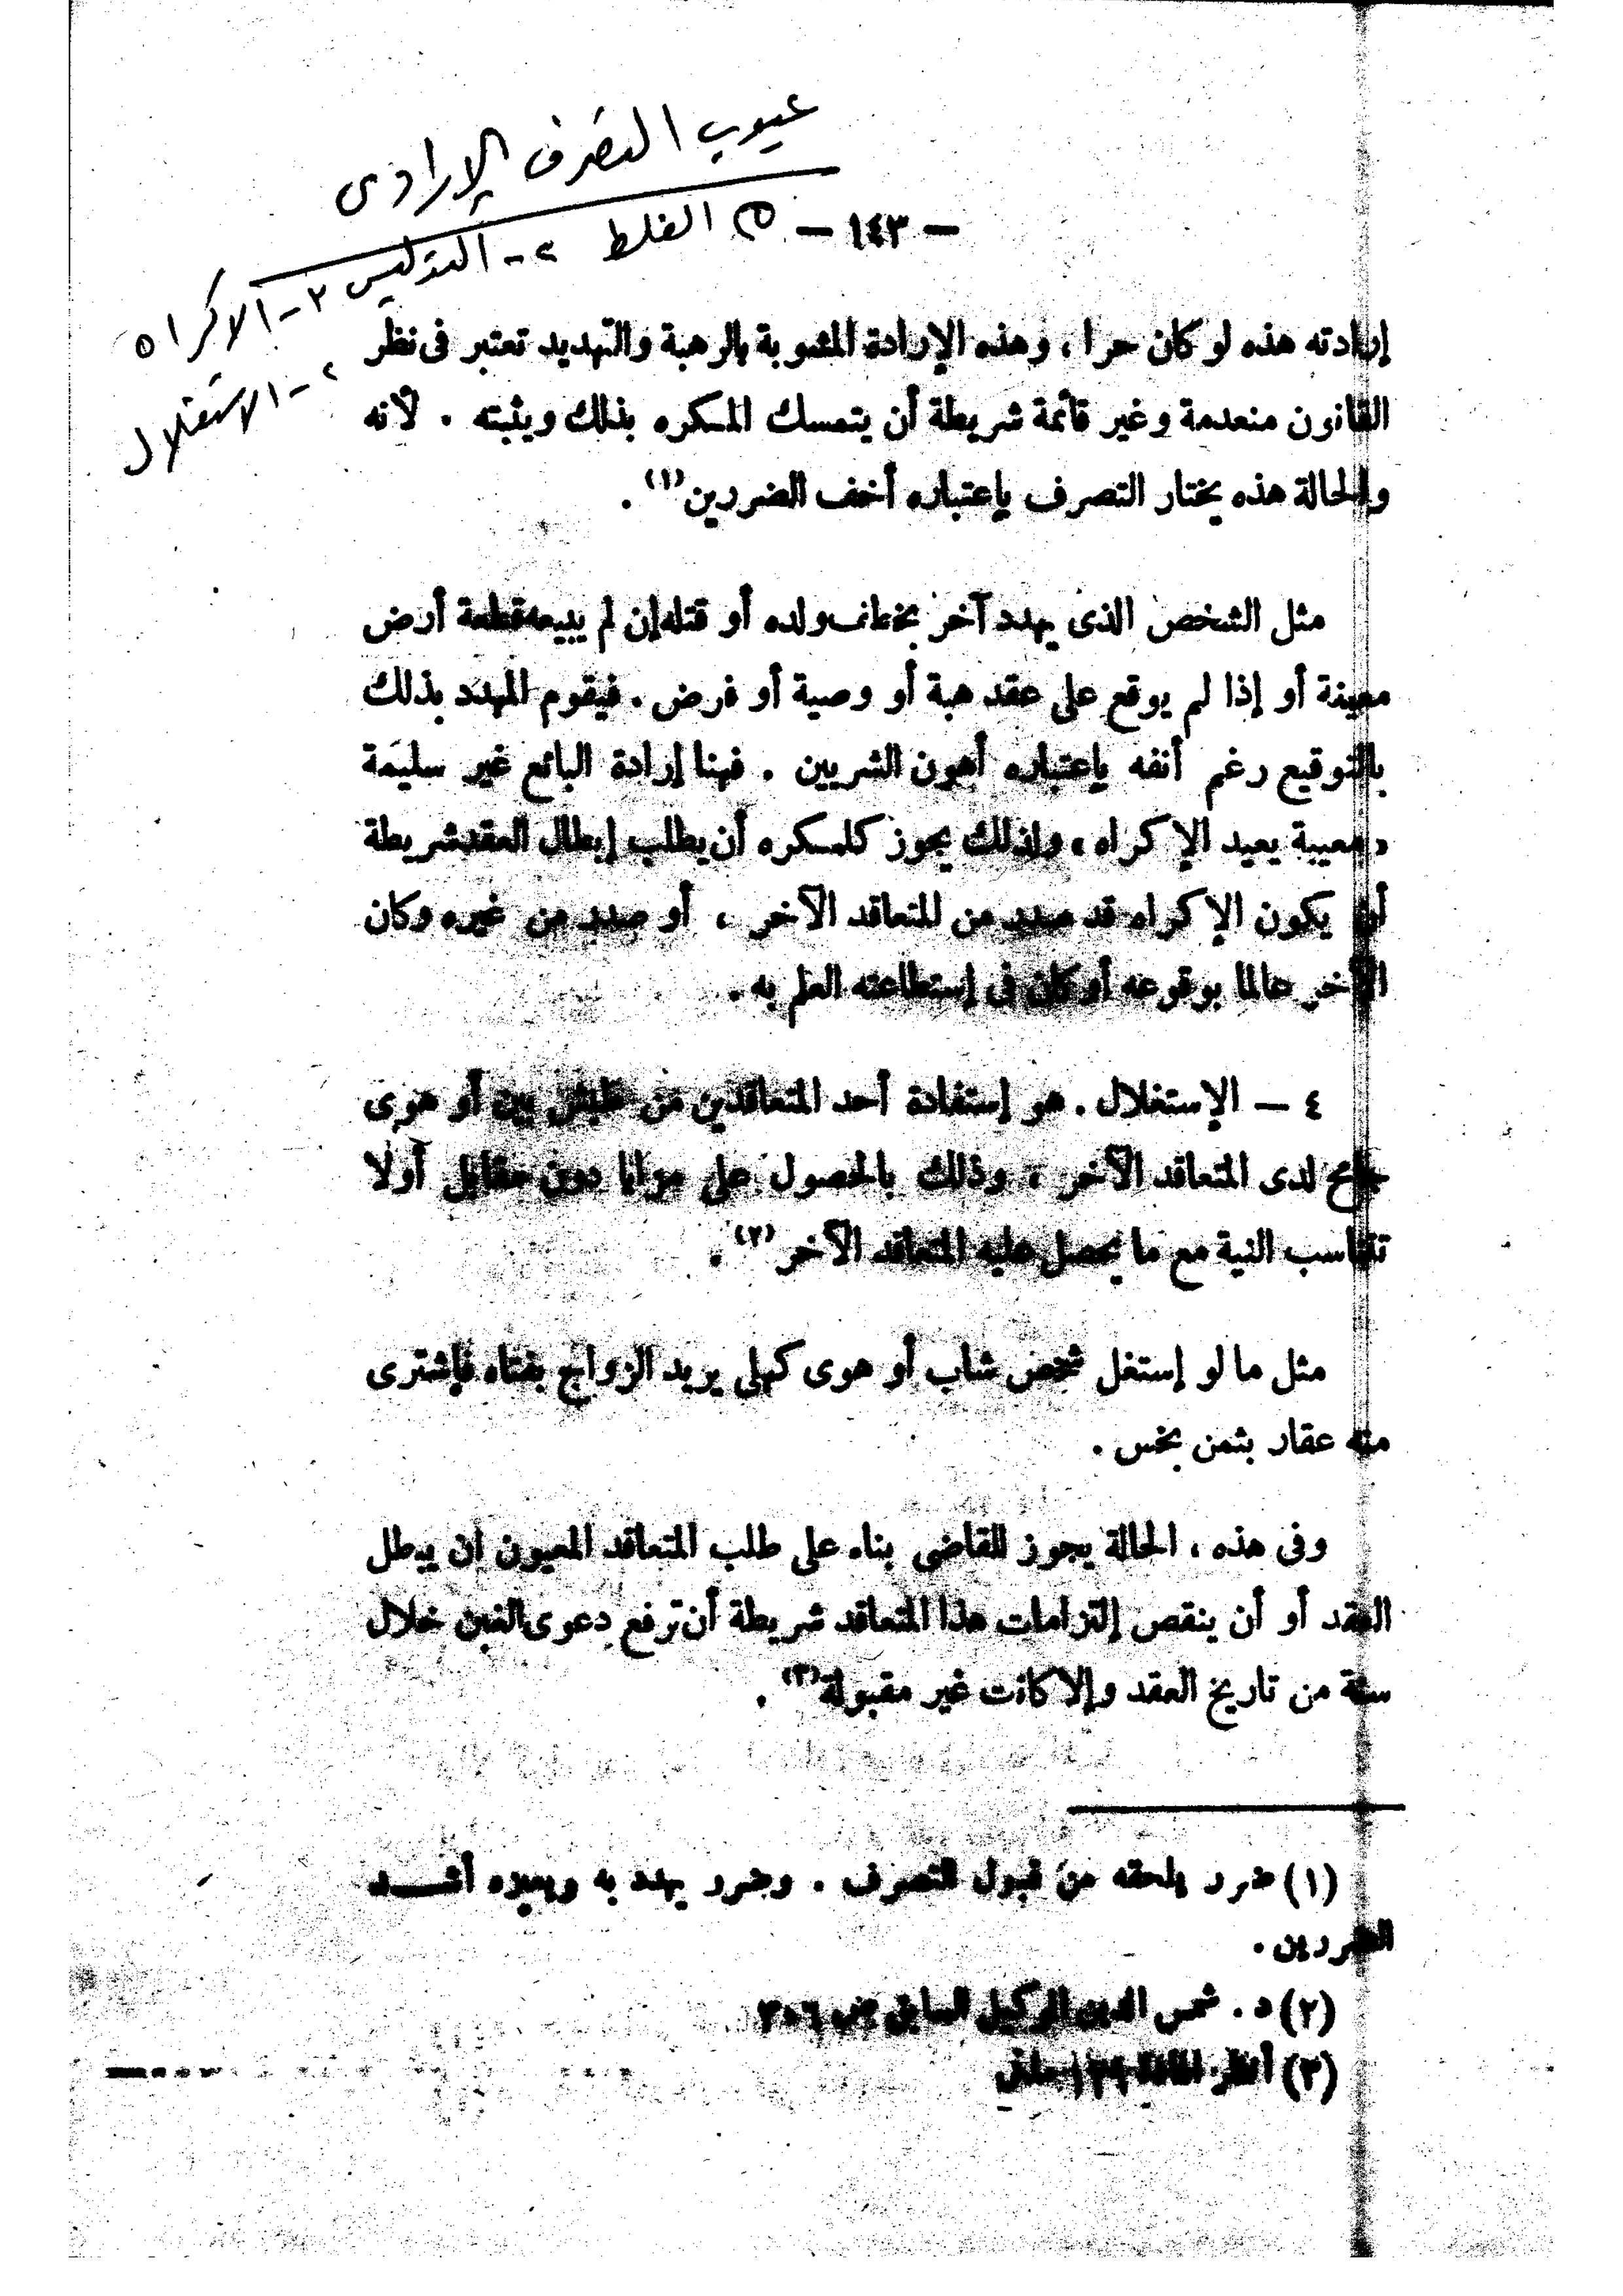 عيوب التصرف الإرادى
① الغلط ٢- التدليس ٣- الاكراه
- الاستغلال
— ١٤٣ —
إرادته هذه لو كان حرا ، وهذه الإرادة المشوبة بالرهبة والتهديد تعتبر فى نظر
القانون منعدمة وغير قائمة شريطة أن يتمسك المكره بذلك ويثبته . لأنه
والحالة هذه يختار التصرف بإعتباره أخف الضررين(١) .
مثل الشخص الذى يهدد آخر بخطف ولده أو قتله إن لم يبيعه قطعة أرض
معينة أو إذا لم يوقع على عقد هبة أو وصية أو قرض . فيقوم المهدد بذلك
بالتوقيع رغم أنفه بإعتباره أهون الشريين . فهنا إرادة البائع غير سليمة
ومعيبة بعيد الإكراه ، ولذلك يجوز للمكره أن يطلب إبطال العقد شريطة
أن يكون الإكراه قد صدر من المتعاقد الآخر ، أو صدر من غيره وكان
الآخر عالما بوقوعه أو كان فى إستطاعته العلم به .
٤ — الإستغلال . هو إستفادة أحد المتعاقدين من طيش بين أو هوى
جامح لدى المتعاقد الآخر ، وذلك بالحصول على مزايا دون مقابل أولا
تتناسب النية مع ما يحصل عليه المتعاقد الآخر(٢) .
مثل ما لو إستغل شخص شاب أو هوى كهلى يريد الزواج بفتاه فإشترى
منه عقار بثمن بخس .
وفى هذه ، الحالة يجوز للقاضى بناء على طلب المتعاقد المعيون ان يبطل
العقد أو أن ينقص إلتزامات هذا المتعاقد شريطة أن ترفع دعوى الغبن خلال
سنة من تاريخ العقد وإلا كانت غير مقبولة(٣) .
(١) ضرر يلحقه من قبول التصرف . وضرر يهدد به ويميزه أشـــد
الضررين .
(٢) د . شمس الدين الوكيل السابق ص ٣٠٦
(٣) أنظر المادة ١٢٩